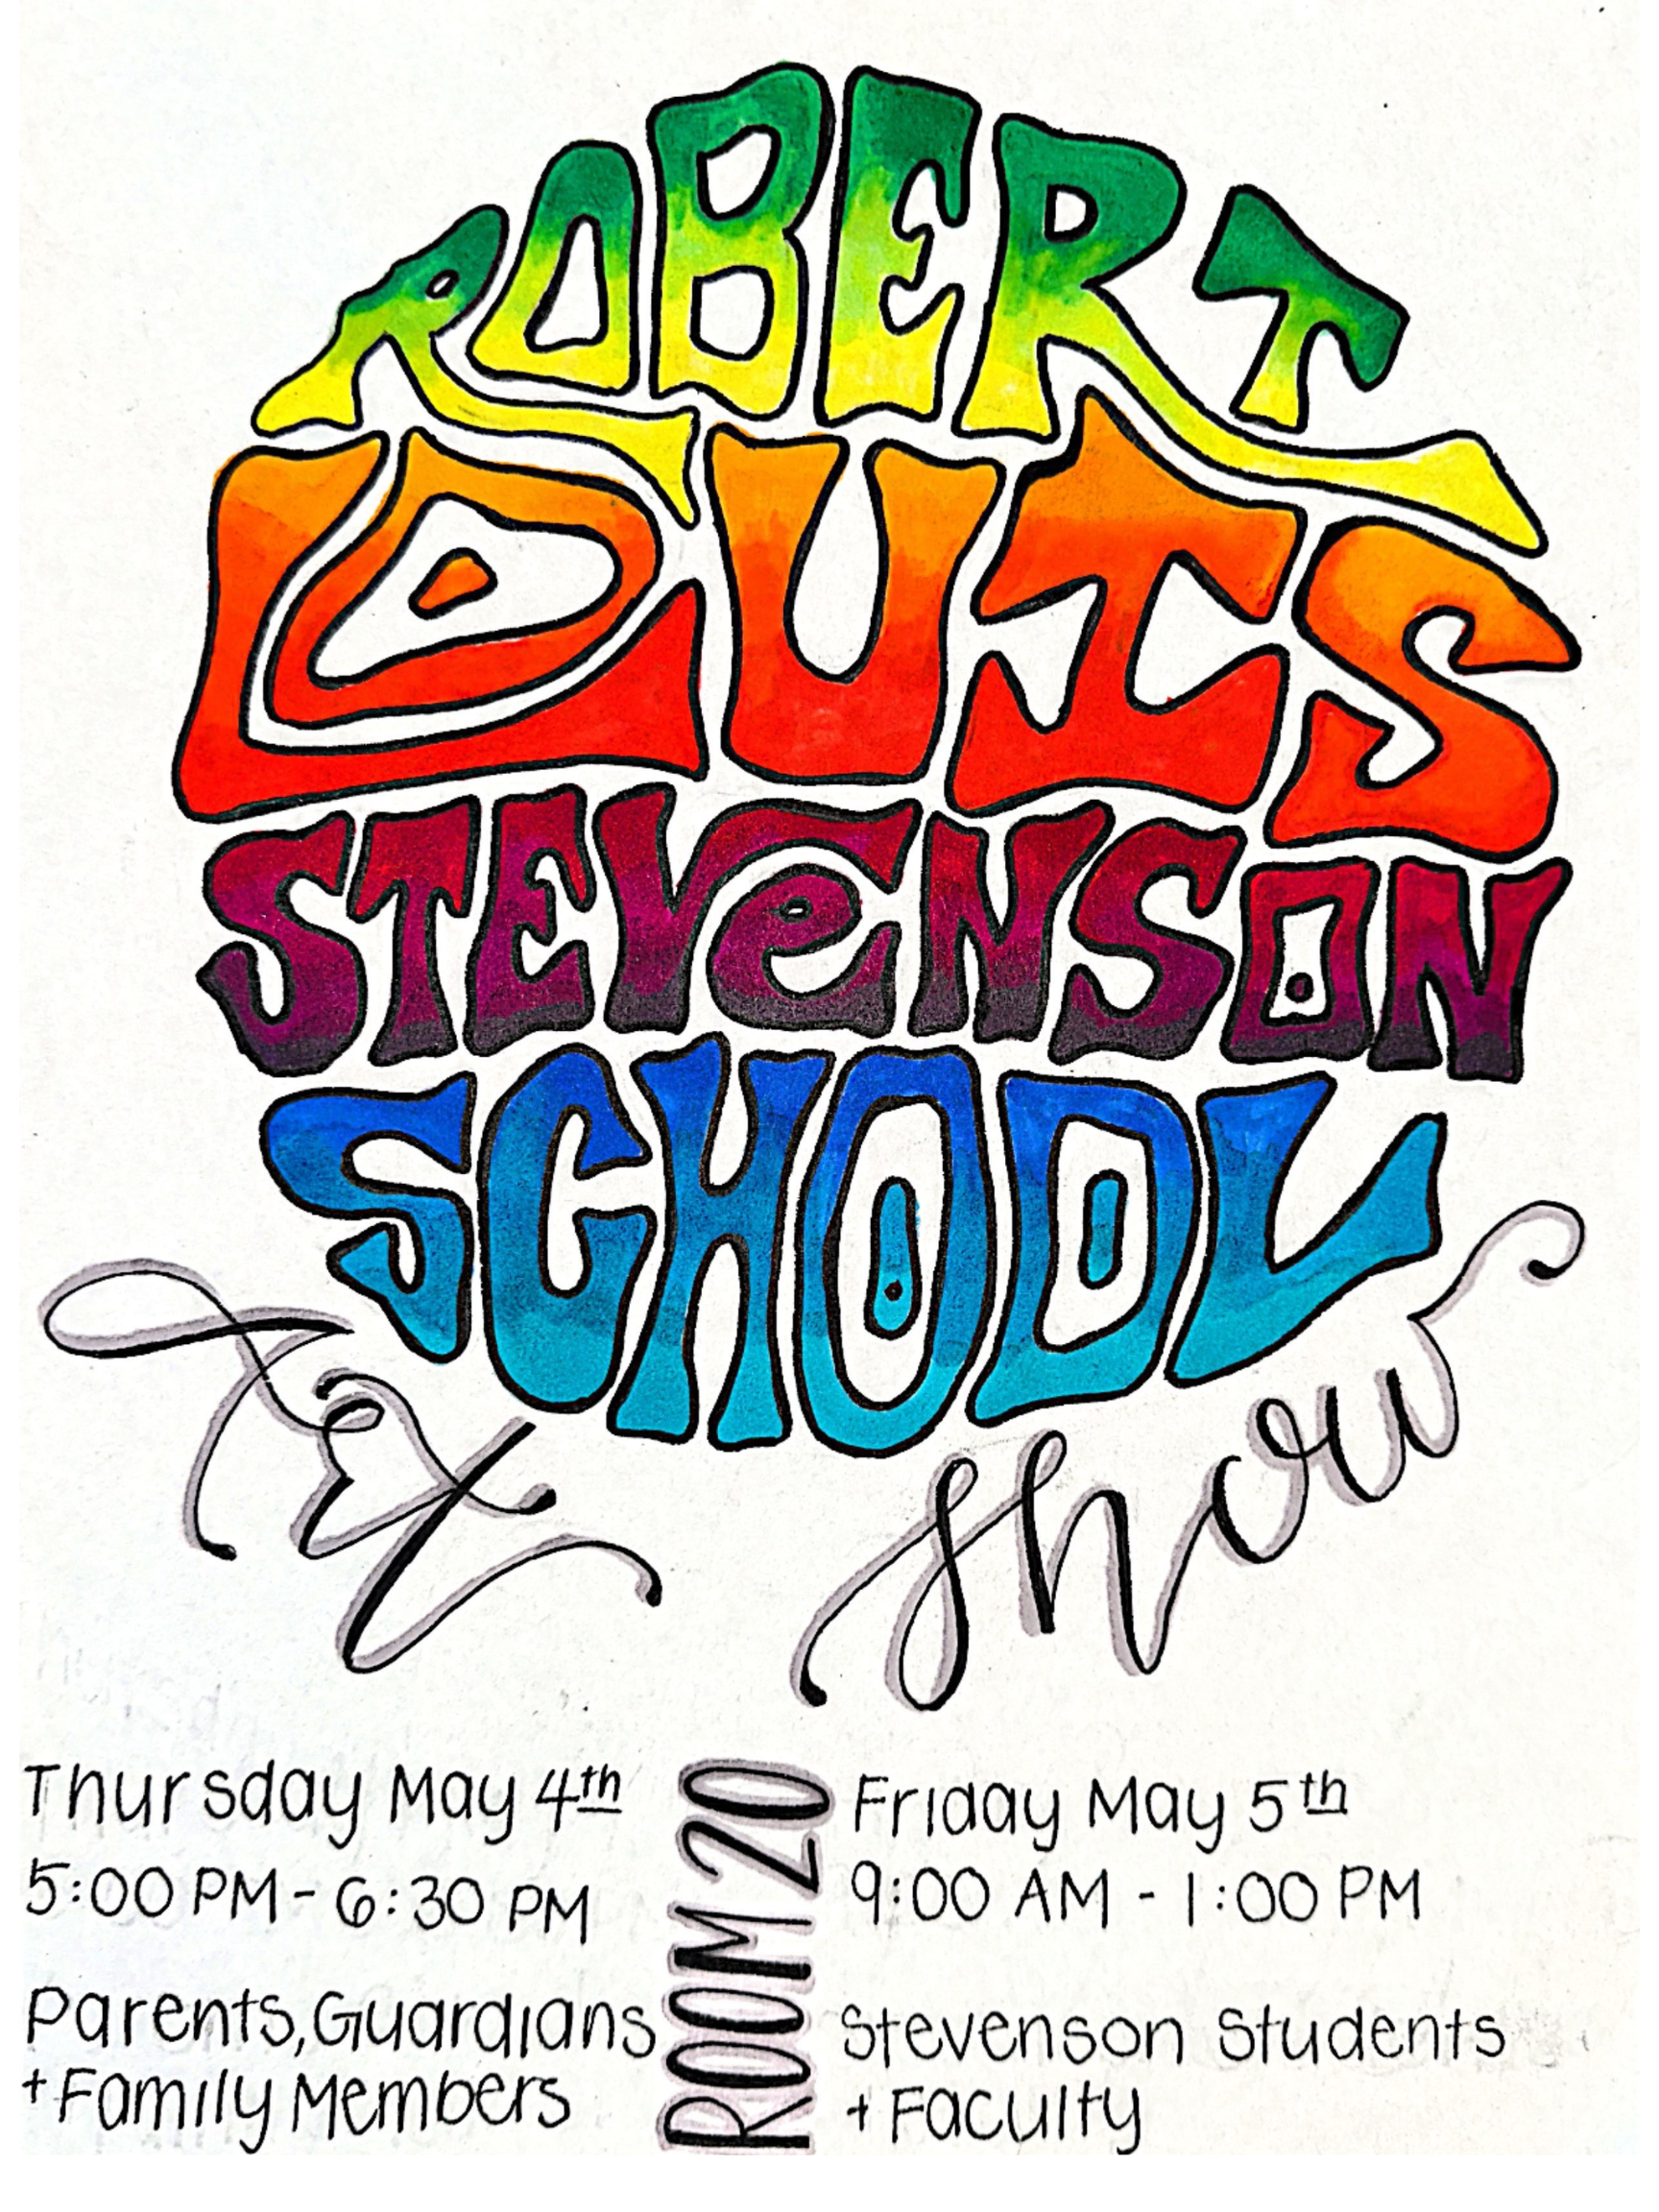 ROBERT
LOUIS
STEVENSON
SCHOOL
Art Show
Thursday May 4th
5:00 PM - 6:30 PM
Parents, Guardians
+ Family Members
ROOM 20
Friday May 5th
9:00 AM - 1:00 PM
Stevenson Students
+ Faculty